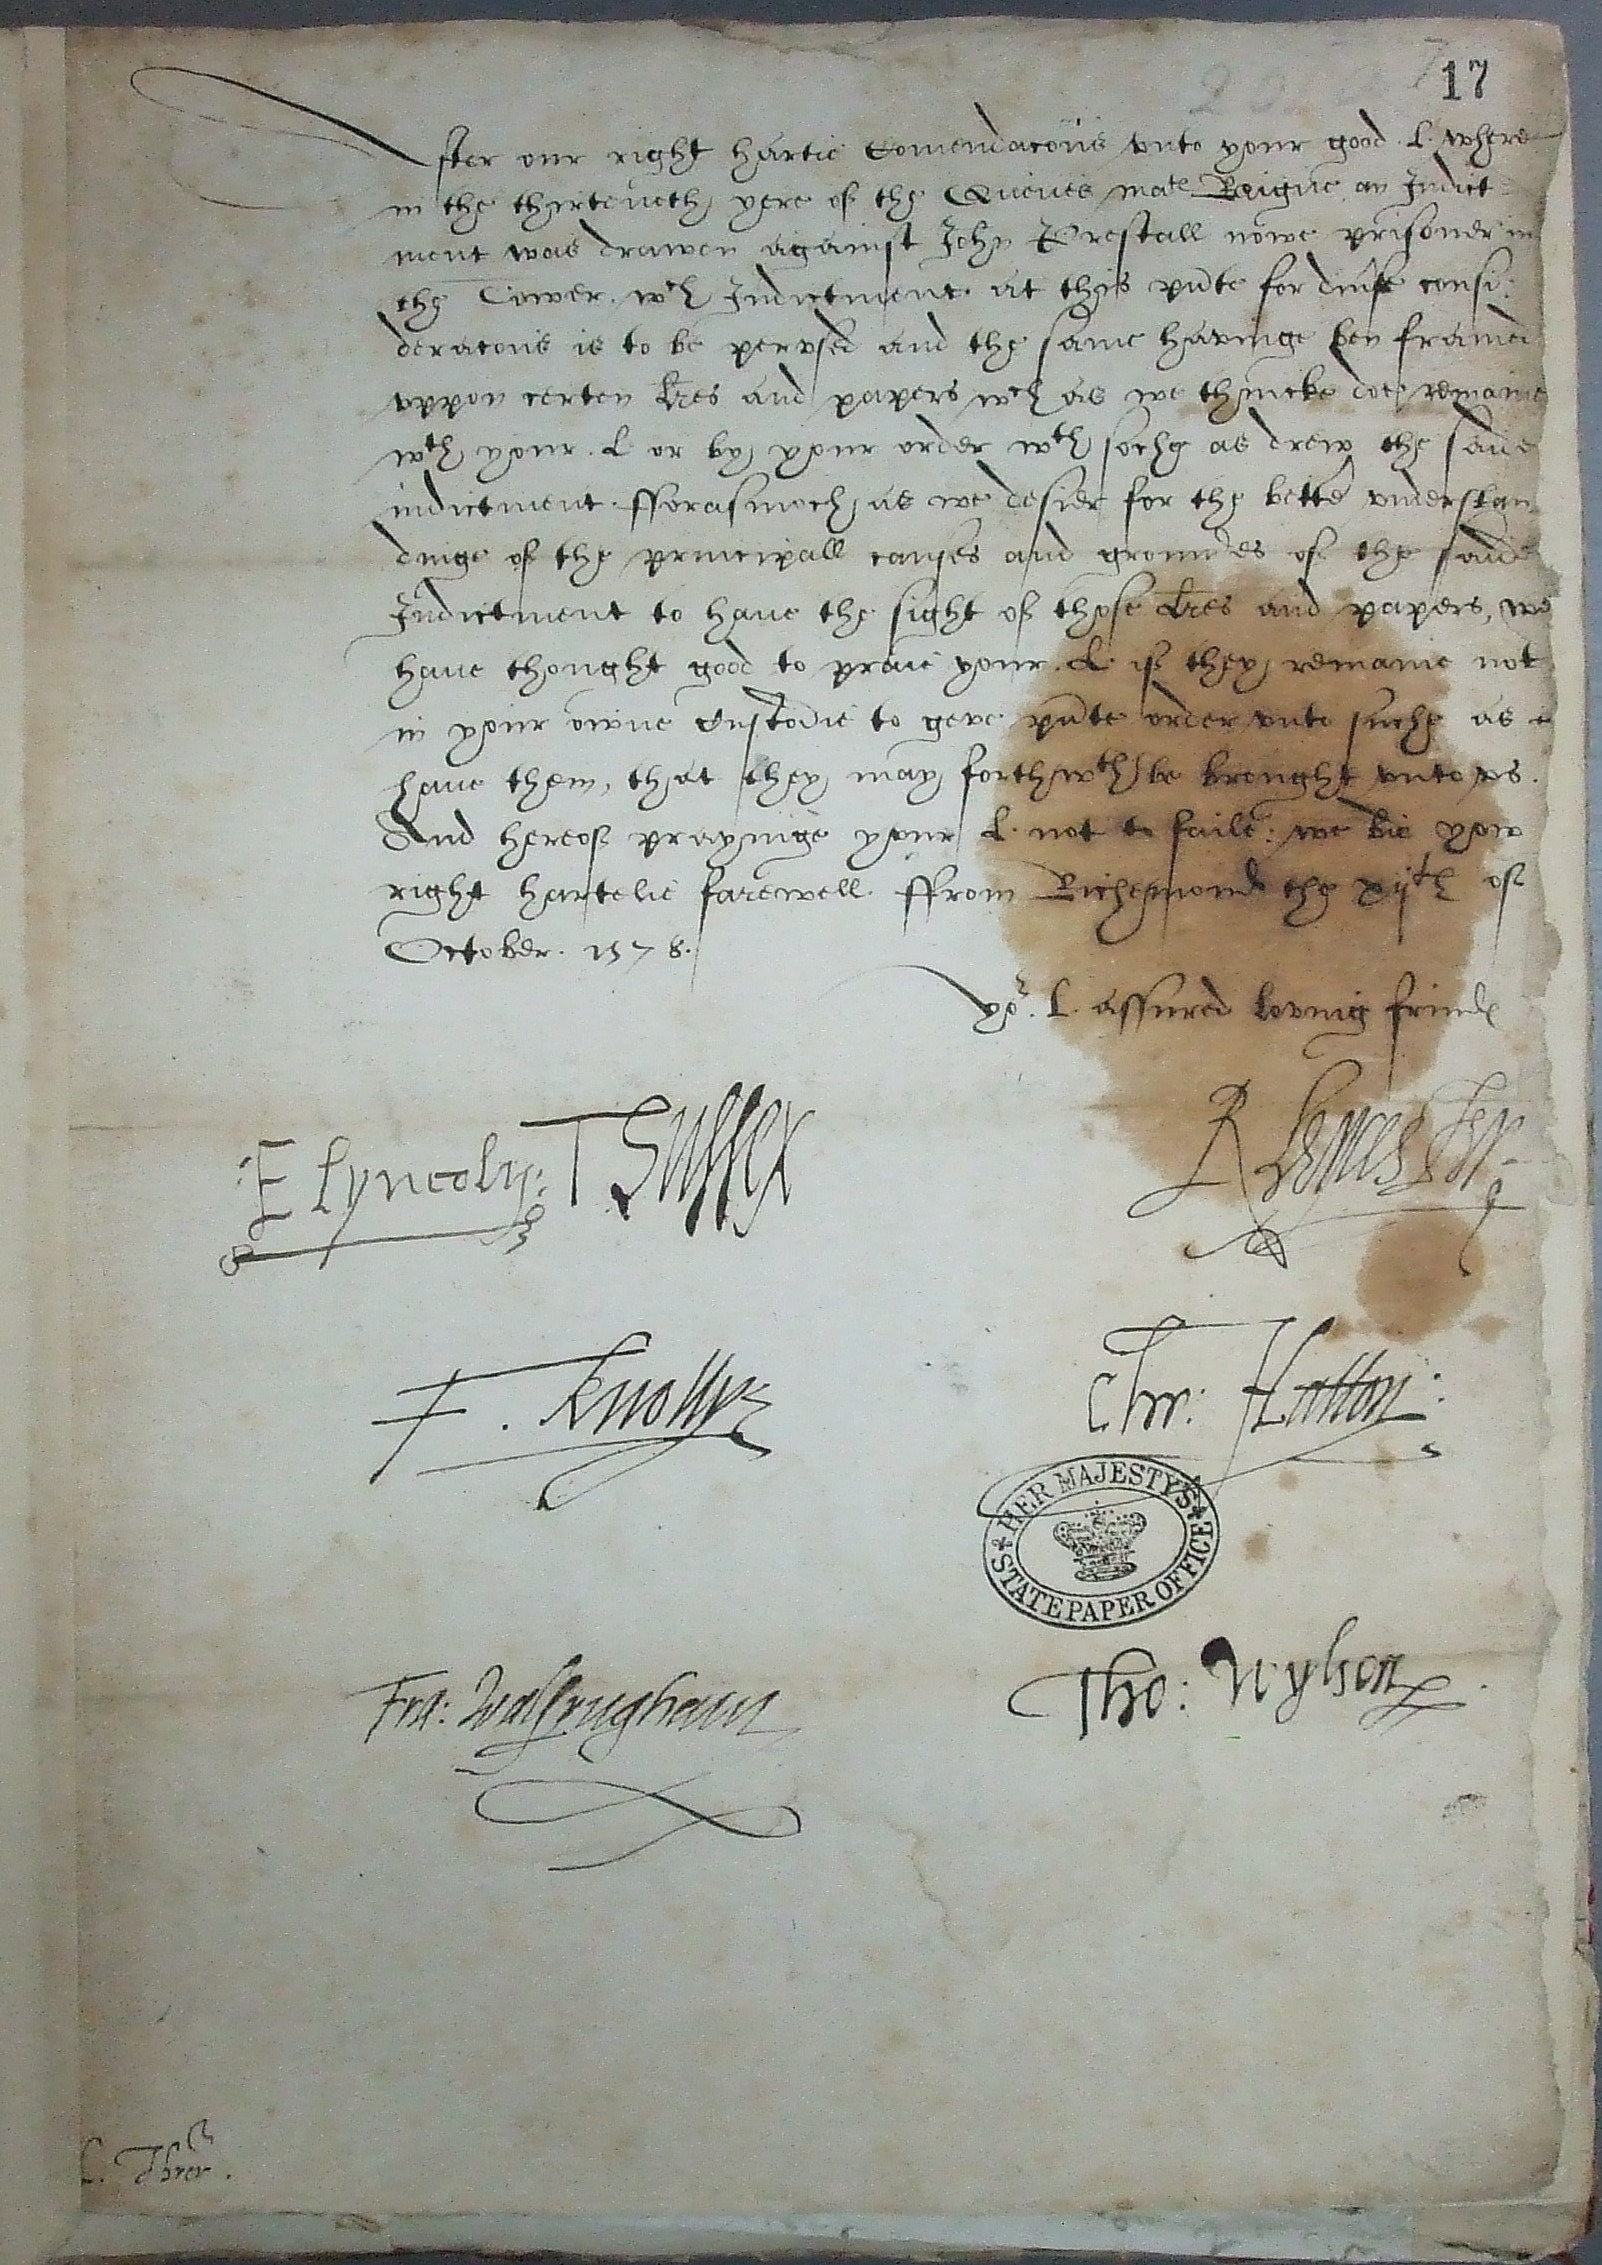 17
After our right hartie Comendacons vnto your good L. where
in the thirteneth yere of the Quenes mate Reigne an Indict
ment was drawen against John Prestall nowe prisoner in
the Tower. wch Indictment at this pnte for diuse consi:
deracons is to be pervsed and the same havinge ben framed
vppon certen lres and papers wch as we thincke doe remaine
wth your L. or by your order wth soche as drew the saide
indictment. fforasmoch as we desier for the better vnderstan
dinge of the principall causes and groundes of the saide
Indictment to haue the sight of those lres and papers, we
haue thought good to praie your L. if they remaine not
in your owne Custodie to geve pnte order vnto suche as
haue them, that they may forthwth be brought vnto vs.
And hereof prayinge your L. not to faile: we bid yow
right hartelie farewell. ffrom Richemond the xijth of
October. 1578.
yor. L. assured loving frindes
E Lyncoln: T Sussex
R Leycester
F. Knollys
Chr: Hatton:
HER MAJESTY'S
STATE PAPER OFFICE
Fra: Walsyngham
Tho: Wylson
L. Threr.